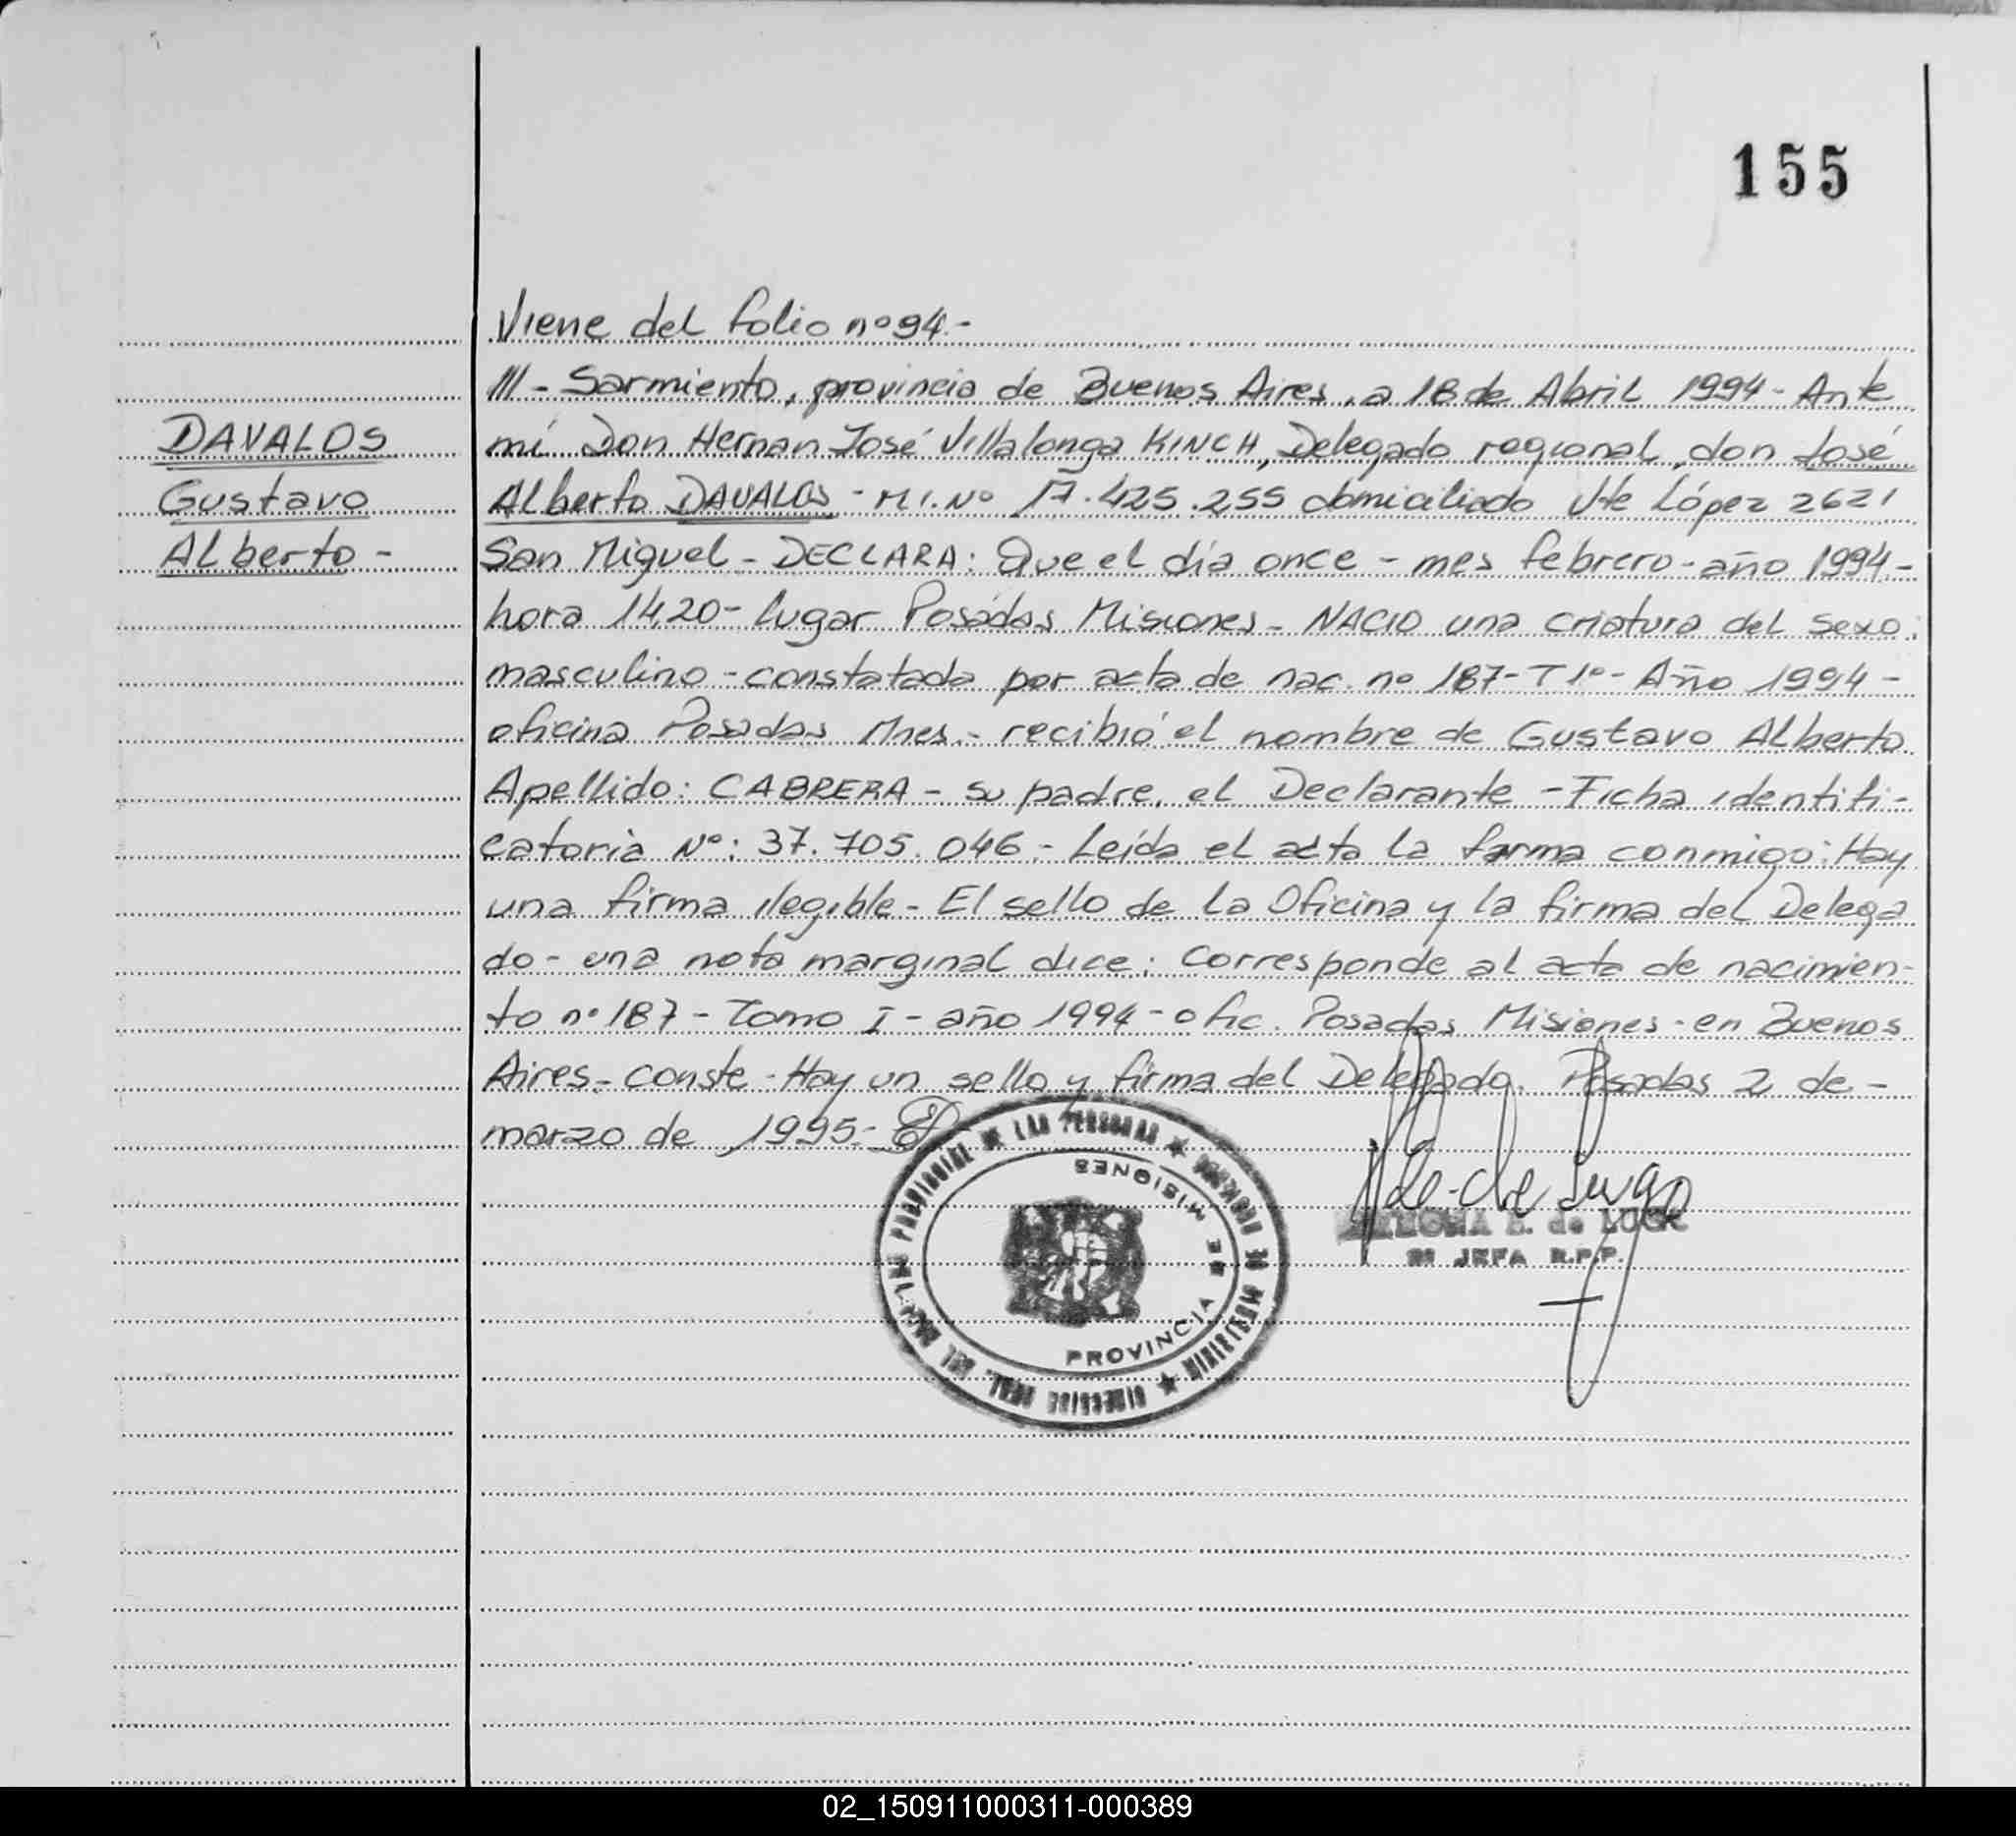 155
Viene del folio nº 94.-
III - Sarmiento, provincia de Buenos Aires, a 18 de Abril 1994 - Ante
DAVALOS
mí Don Hernan José Villalonga KINCH, Delegado regional, don José
Gustavo
Alberto DAVALOS - M.I. Nº 17.425.255 domiciliado Vte López 2621
Alberto -
San Miguel - DECLARA: Que el día once - mes febrero - año 1994.-
hora 14,20 - lugar Posadas Misiones - NACIO una criatura del sexo:
masculino - constatada por acta de nac. nº 187 - T 1º - Año 1994 -
oficina Posadas Mnes.- recibió el nombre de Gustavo Alberto
Apellido: CABRERA - su padre, el Declarante - Ficha identifi-
catoria Nº: 37.705.046.- Leída el acta la firma conmigo: Hay
una firma ilegible - El sello de la Oficina y la firma del Delega
do - una nota marginal dice: Corresponde al acta de nacimien-
to nº 187 - Tomo I - año 1994 - ofic. Posadas Misiones - en Buenos
Aires - conste - Hay un sello y firma del Delegado. Posadas 2 de -
marzo de 1995.-
PROVINCIAL DE LAS PERSONAS
PROVINCIA DE MISIONES
de Lugo
E. de LUGO
JEFA R.P.P.
02_150911000311-000389